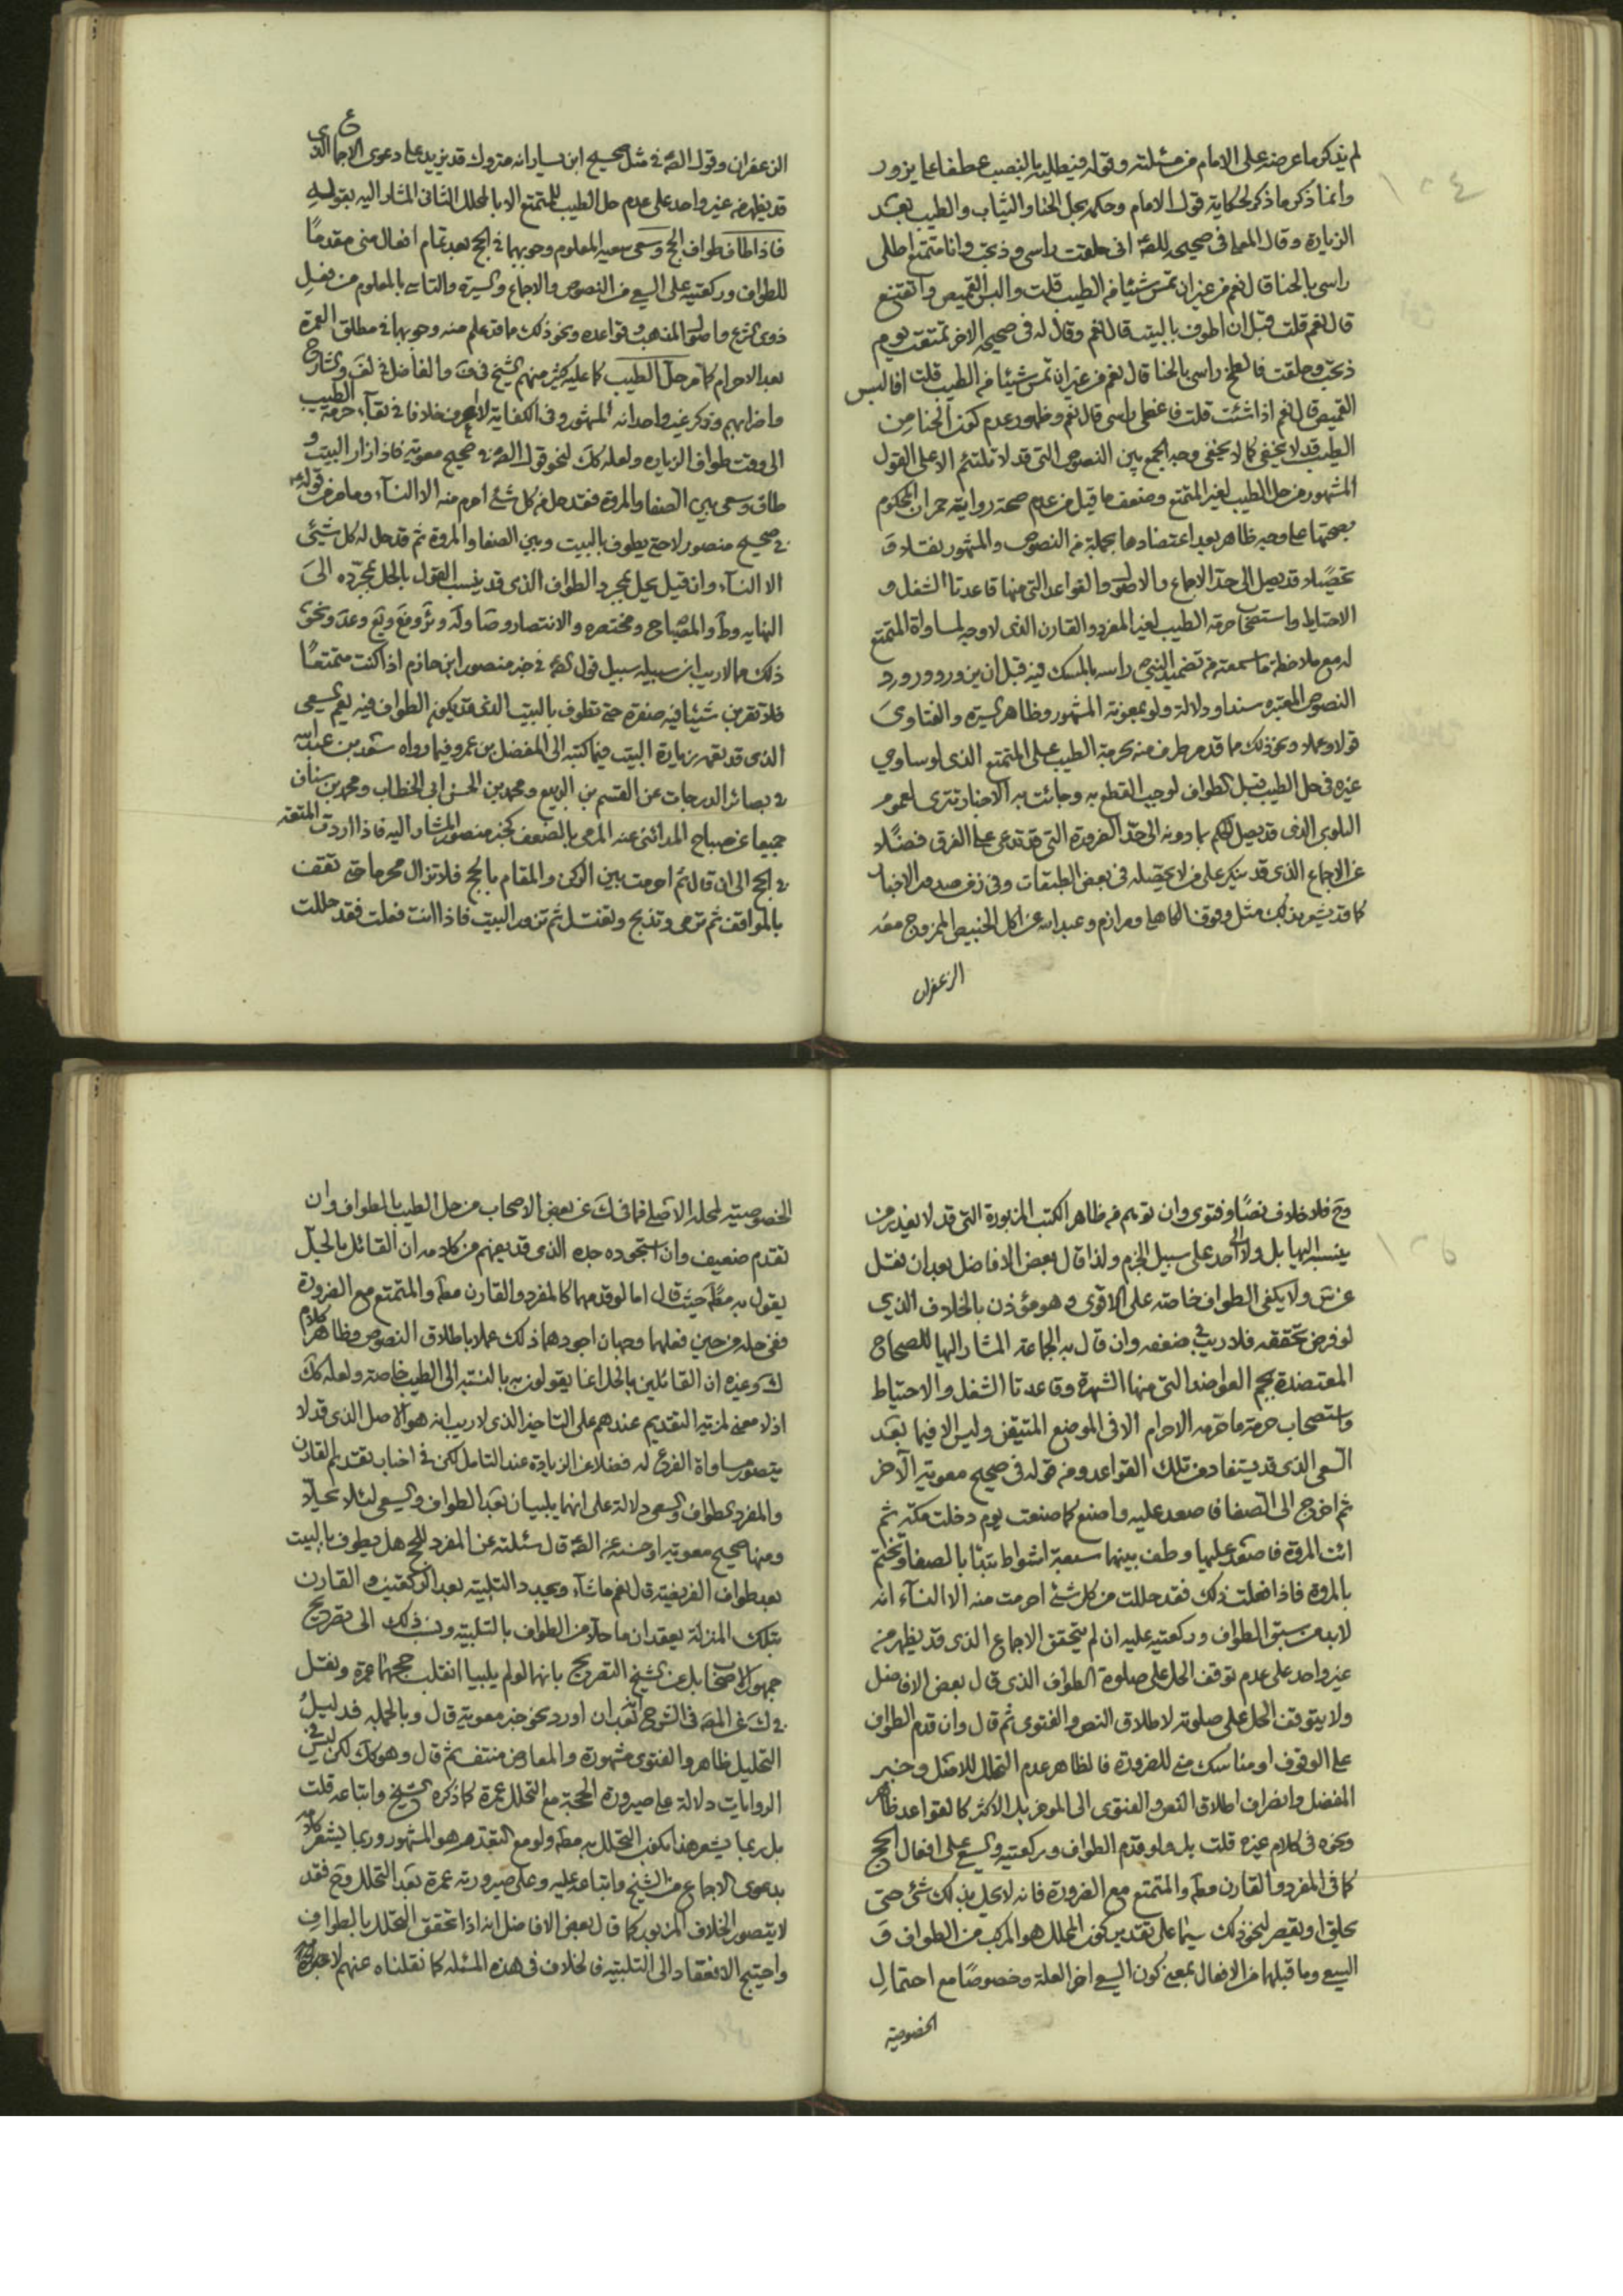 ١٠٤
لم يذكر ما عرضه على الامام من مسئلته وقوله فيطليه بالنصب عطفا على يزور
وانما ذكر ما ذكر لحكاية قول الامام وحكمه بحل الحنا والثياب والطيب بعد
الزيارة وقال المعا في صحيحه للصه انى حلقت راسى وذبحت وانا متمتع اطلى
راسى بالحنا قال نعم من غير ان تمس شيئا من الطيب قلت والبس القميص واتقنع
قال نعم قلت قبل ان اطوف بالبيت قال نعم وقال له فى صحيحه الاخر تمتعت يوم
ذبحت وحلقت فالطخ راسى بالحنا قال نعم من غير ان تمس شيئا من الطيب قلت افالبس
القميص قال نعم اذا شئت قلت فاغطى راسى قال نعم وظهور عدم كون الحنا من
الطيب قد لا يخفى كما لا يخفى وجه الجمع بين النصوص التى قد لا تلتئم الا على القول
المشهور من حل الطيب لغير المتمتع وضعف ما قيل من عدم صحة رواية حمران المحكوم
بصحتها على وجه ظاهر بعد اعتضادها بجملة من النصوص والمشهور نقلا و
تحصيلا قد يصل الى حد الاجماع والاصول والقواعد التى منها قاعدتا الشغل و
الاحتياط واستصحاب حرمة الطيب لغير المفرد والقارن الذى لا وجه لمساواة المتمتع
له مع ملاحظة ما سمعته من تضميد النبى ص راسه بالمسك فيه قبل ان يزور وورود
النصوص المعتبره سندا ودلالة ولو بمعونة المشهور وظاهر السيرة والفتاوى
قولا وعملا ونحو ذلك مما قد مر طرف منه بحرمة الطيب على المتمتع الذى لو ساوى
غيره فى حل الطيب قبل الطواف لوجب القطع به وجائت به الاخبار تترى لعموم
البلوى الذى قد يصل الحكم بما دونه الى حد الضرورة التى قد تدعى على الفرق فضلا
عن الاجماع الذى قد ينكر على من لا يحصله فى بعض الطبقات وفى زمن صدور الاخبار
كما قد يشعر بذلك مثل وقوف الكاهلى ومرازم وعبد الله عن اكل الخبيص الممزوج معه
الزعفران
الزعفران وقول الصه فى مثل صحيح ابن يسار انه متروك قد يزيد على دعوى الاجماع الذى
قد يظهر من غير واحد على عدم حل الطيب للمتمتع الا بالمحلل الثانى المشار اليه بقوله
فاذا طاف طواف الحج وسعى سعيه المعلوم وجوبهما فى الحج بعد تمام افعال منى مقدما
للطواف وركعتيه على السعى من النصوص والاجماع والسيرة والتاسى بالمعلوم من فعل
ذوى الشرع واصول المذهب وقواعده ونحو ذلك مما قد علم منه وجوبها فى مطلق العمرة
بعد الاحرام كما مر حل الطيب كما عليه كثير منهم الشيخ فى ف والفاضل فى لف والشارح
واضرابهم وذكر غير واحد انه المشهور وفى الكفاية لا اعرف خلافا فى بقاء حرمة الطيب
الى وقت طواف الزياره ولعله كك لنحو قول الصه فى صحيح معوية فاذا زار البيت و
طاف وسعى بين الصفا والمروة فقد حل من كل شئ احرم منه الا النساء وما مر من قوله
فى صحيح منصور لا حتى يطوف بالبيت وبين الصفا والمروة ثم قد حل له كل شئ
الا النساء وان قيل يحل بمجرد الطواف الذى قد ينسب القول بالحل بمجرده الى
النهايه وط والمصباح ومختصره والانتصار وصا وله ونحو
ذلك مما لا ريب ان سبيله سبيل قول الصه فى خبر منصور ابن حازم اذا كنت متمتعا
فلا تقربن شيئا فيه صفرة حتى تطوف بالبيت الذى قد يكون الطواف فيه يعم السعى
الذى قد يعمه زيارة البيت فيما كتبه الى المفضل بن عمر وفيما رواه سعد بن عبد الله
فى بصائر الدرجات عن القسم بن الربيع ومحمد بن الحسن ابى الخطاب ومحمد بن سنان
جميعا عن صباح المدائنى عنه المرمى بالضعف كخبر منصور المشار اليه فاذا اردت المتعة
فى الحج الى ان قال ثم احرمت بين الركن والمقام بالحج فلا تزال محرما حتى تقف
بالمواقف ثم ترمى وتذبح وتغتسل ثم تزور البيت فاذا انت فعلت فقد حللت
١٠٥
وح فلا خلاف نصا وفتوى وان توهم من ظاهر الكتب المزبورة التى قد لا يعذر من
ينسبه اليها بل ولا الى احد على سبيل الجزم ولذا قال بعض الافاضل بعد ان نقل
عن ولا يكفى الطواف خاصة على الاقوى وهو مؤذن بالخلاف الذى
لو فرض تحققه فلا ريب فى ضعفه وان قال به الجماعة المشار اليها للصحاح
المعتضدة بجم العواضد التى منها الشهرة وقاعدتا الشغل والاحتياط
واستصحاب حرمة ما حرمه الاحرام الا فى الموضع المتيقن وليس الا فيما بعد
السعى الذى قد يستفاد من تلك القواعد ومن قوله فى صحيح معوية الآخر
ثم اخرج الى الصفا فاصعد عليه واصنع كما صنعت يوم دخلت مكة ثم
ائت المروة فاصعد عليها وطف بينهما سبعة اشواط تبدا بالصفا وتختم
بالمروة فاذا فعلت ذلك فقد حللت من كل شئ احرمت منه الا النساء انه
لابد من سبق الطواف وركعتيه عليه ان لم يتحقق الاجماع الذى قد يظهر من
غير واحد على عدم توقف الحل على صلوة الطواف الذى قال بعض الافاضل
ولا يتوقف الحل على صلوته لاطلاق النص والفتوى ثم قال وان قدم الطواف
على الوقوف او مناسك منى للضرورة فالظاهر عدم التحلل للاصل وخبر
المفضل وانصراف اطلاق النص والفتوى الى المؤخر بل الاكثر كالقواعد ظاهر
ونحوه فى كلام غيره قلت بل ولو قدم الطواف وركعتيه والسعى على افعال الحج
كما فى المفرد والقارن مط والمتمتع مع الضرورة فانه لا يحل بذلك شئ حتى
يحلق او يقصر لنحو ذلك سيما على تقدير كون المحلل هو المركب من الطواف و
السعى وما قبلهما من الافعال بمعنى كون السعى اخر العلة وخصوصا مع احتمال
الخصوصية
الخصوصية لمحله الاصلى فما فى ك عن بعض الاصحاب من حل الطيب بالطواف وان
تقدم ضعيف وان استجوده جده الذى قد يفهم من كلامه ان القائل بالحل
يقول به مط حيث قال اما لو قدمهما كالمفرد والقارن مط والمتمتع مع الضرورة
ففى حله من حين فعلهما وجهان اجودهما ذلك عملا باطلاق النصوص وظاهر كلام
ك وغيره ان القائلين بالحل انما يقولون به بالنسبة الى الطيب خاصة ولعله كك
اذ لا معنى لمزية التقديم عندهم على التاخير الذى لا ريب انه هو الاصل الذى قد لا
يتصور مساواة الفرع له فضلا عن الزيادة عند التامل لكن فى اخبار تقديم القارن
والمفرد للطواف والسعى دلالة على انهما يلبيان بعد الطواف والسعى لئلا يحلا
ومنها صحيح معوية او حسنه عن الصه قال سئلته عن المفرد للحج هل يطوف بالبيت
بعد طواف الفريضة قال نعم ما شاء ويجدد التلبية بعد الركعتين والقارن
بتلك المنزلة يعقدان ما حلا من الطواف بالتلبية ونسب ذلك الى تصريح
جمهور الاصحاب بل عن الشيخ التصريح بانهما لو لم يلبيا انقلب حجهما عمرة ونقل
فى ك عن المصه فى النوحى انه بعد ان اورد نحو خبر معوية قال وبالجملة فدليل
التحليل ظاهر والفتوى مشهورة والمعارض منتف ثم قال وهو كك لكن ليس فى
الروايات دلالة على صيرورة الحجة مع التحلل عمرة كما ذكره الشيخ واتباعه قلت
بل ربما يشعر هذا بكون التحلل به مط ولو مع التقدم هو المشهور وربما يشعر كلامه
بدعوى الاجماع من الشيخ واتباعه عليه وعلى صيرورته عمرة بعد التحلل وح فقد
لا يتصور الخلاف المزبور كما قال بعض الافاضل انه اذا تحقق التحلل بالطواف
واحتيج الانعقاد الى التلبية فالخلاف فى هذه المسئلة كما نقلناه عنهم